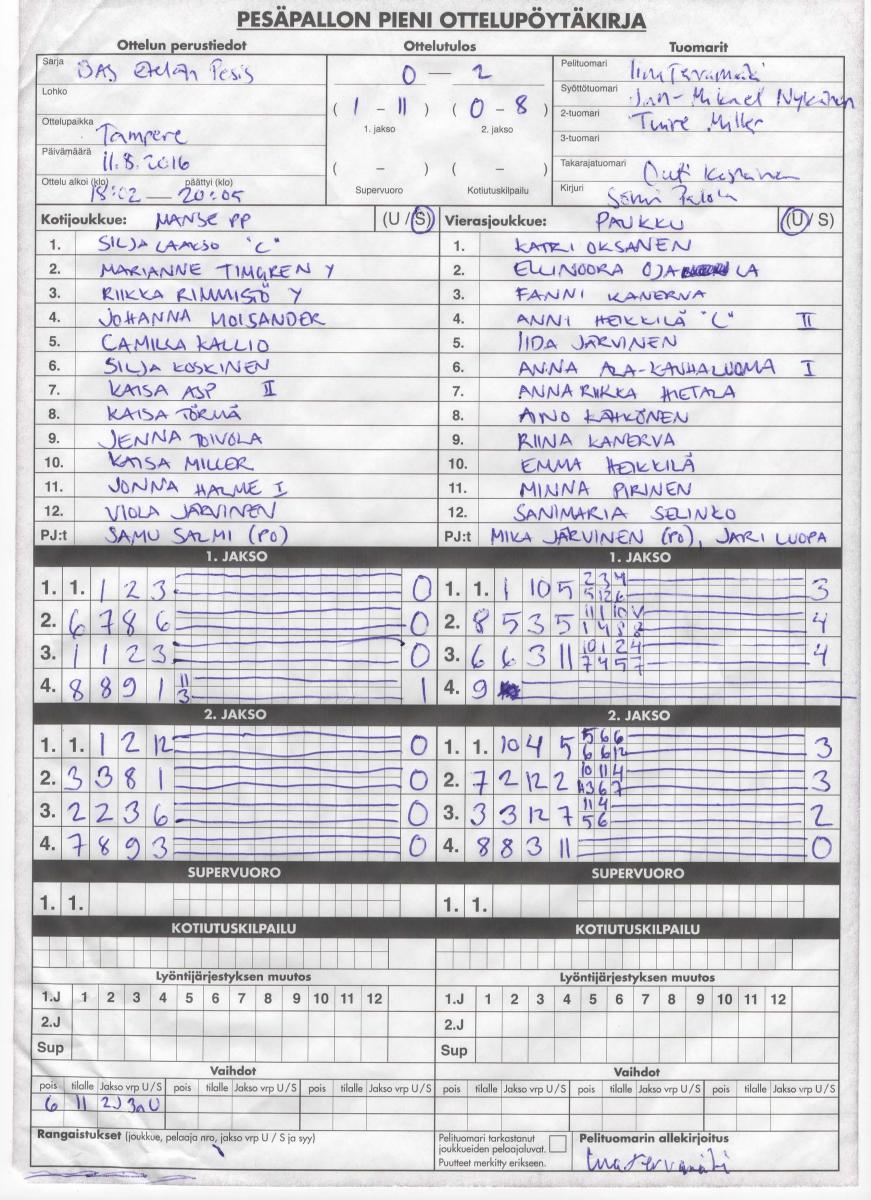 PESÄPALLON PIENI OTTELUPÖYTÄKIRJA
Ottelun perustiedot
Ottelutulos
Tuomarit
Sarja
Pesis
0 - 2
Pelituomari
Lohko
( 1 - 11 ) ( 0 - 8 )
Syöttötuomari Jan-Mikael Nykänen
1. jakso
2. jakso
Ottelupaikka Tampere
2-tuomari Tuire Miller
3-tuomari
Päivämäärä 11.8.2016
( - ) ( - )
Takarajatuomari Outi
Ottelu alkoi (klo) päättyi (klo)
18:02 — 20:05
Supervuoro
Kotiutuskilpailu
Kirjuri
Kotijoukkue: MANSE PP (U / S)
1. SILJA LAAKSO "C"
2. MARIANNE TIMGREN Y
3. RIIKKA RIMMISTÖ Y
4. JOHANNA MOISANDER
5. CAMILLA KALLIO
6. SILJA KOSKINEN
7. KAISA ASP II
8. KAISA TÖRMÄ
9. JENNA TOIVOLA
10. KAISA MILLER
11. JONNA HALME I
12. VIOLA JÄRVINEN
PJ:t SAMU SALMI (PO)
Vierasjoukkue: PAUKKU (U / S)
1. KATRI OKSANEN
2. ELLINOORA OJA LA
3. FANNI KANERVA
4. ANNI HEIKKILÄ "C" II
5. IIDA JÄRVINEN
6. ANNA ALA-KAUHALUOMA I
7. ANNARIIKKA HIETALA
8. AINO KÄHKÖNEN
9. RIINA KANERVA
10. EMMA HEIKKILÄ
11. MINNA PIRINEN
12. SANIMARIA SELINKO
PJ:t MIKA JÄRVINEN (PO), JARI LUOPA
1. JAKSO
1. 1. 1 2 3 0
2. 6 7 8 6 0
3. 1 1 2 3 0
4. 8 8 9 1 11 3 1
1. JAKSO
1. 1. 1 10 5 2 3 4 5 12 6 3
2. 8 5 3 5 11 1 10 V 1 4 8 8 4
3. 6 6 3 11 10 1 2 4 7 4 5 7 4
4. 9
2. JAKSO
1. 1. 1 2 12 0
2. 3 3 8 1 0
3. 2 2 3 6 0
4. 7 8 9 3 0
2. JAKSO
1. 1. 10 4 5 5 6 6 6 6 12 3
2. 7 2 12 2 10 11 4 3 6 7 3
3. 3 3 12 7 11 4 5 6 2
4. 8 8 3 11 0
SUPERVUORO
1. 1.
SUPERVUORO
1. 1.
KOTIUTUSKILPAILU
KOTIUTUSKILPAILU
Lyöntijärjestyksen muutos
1.J 1 2 3 4 5 6 7 8 9 10 11 12
2.J
Sup
Lyöntijärjestyksen muutos
1.J 1 2 3 4 5 6 7 8 9 10 11 12
2.J
Sup
Vaihdot
pois tilalle Jakso vrp U / S pois tilalle Jakso vrp U / S pois tilalle Jakso vrp U / S
6 11 2J 3a U
Vaihdot
pois tilalle Jakso vrp U / S pois tilalle Jakso vrp U / S pois tilalle Jakso vrp U / S
Rangaistukset (joukkue, pelaaja nro, jakso vrp U / S ja syy)
Pelituomari tarkastanut
joukkueiden peloajaluvat.
Puutteet merkitty erikseen.
Pelituomarin allekirjoitus